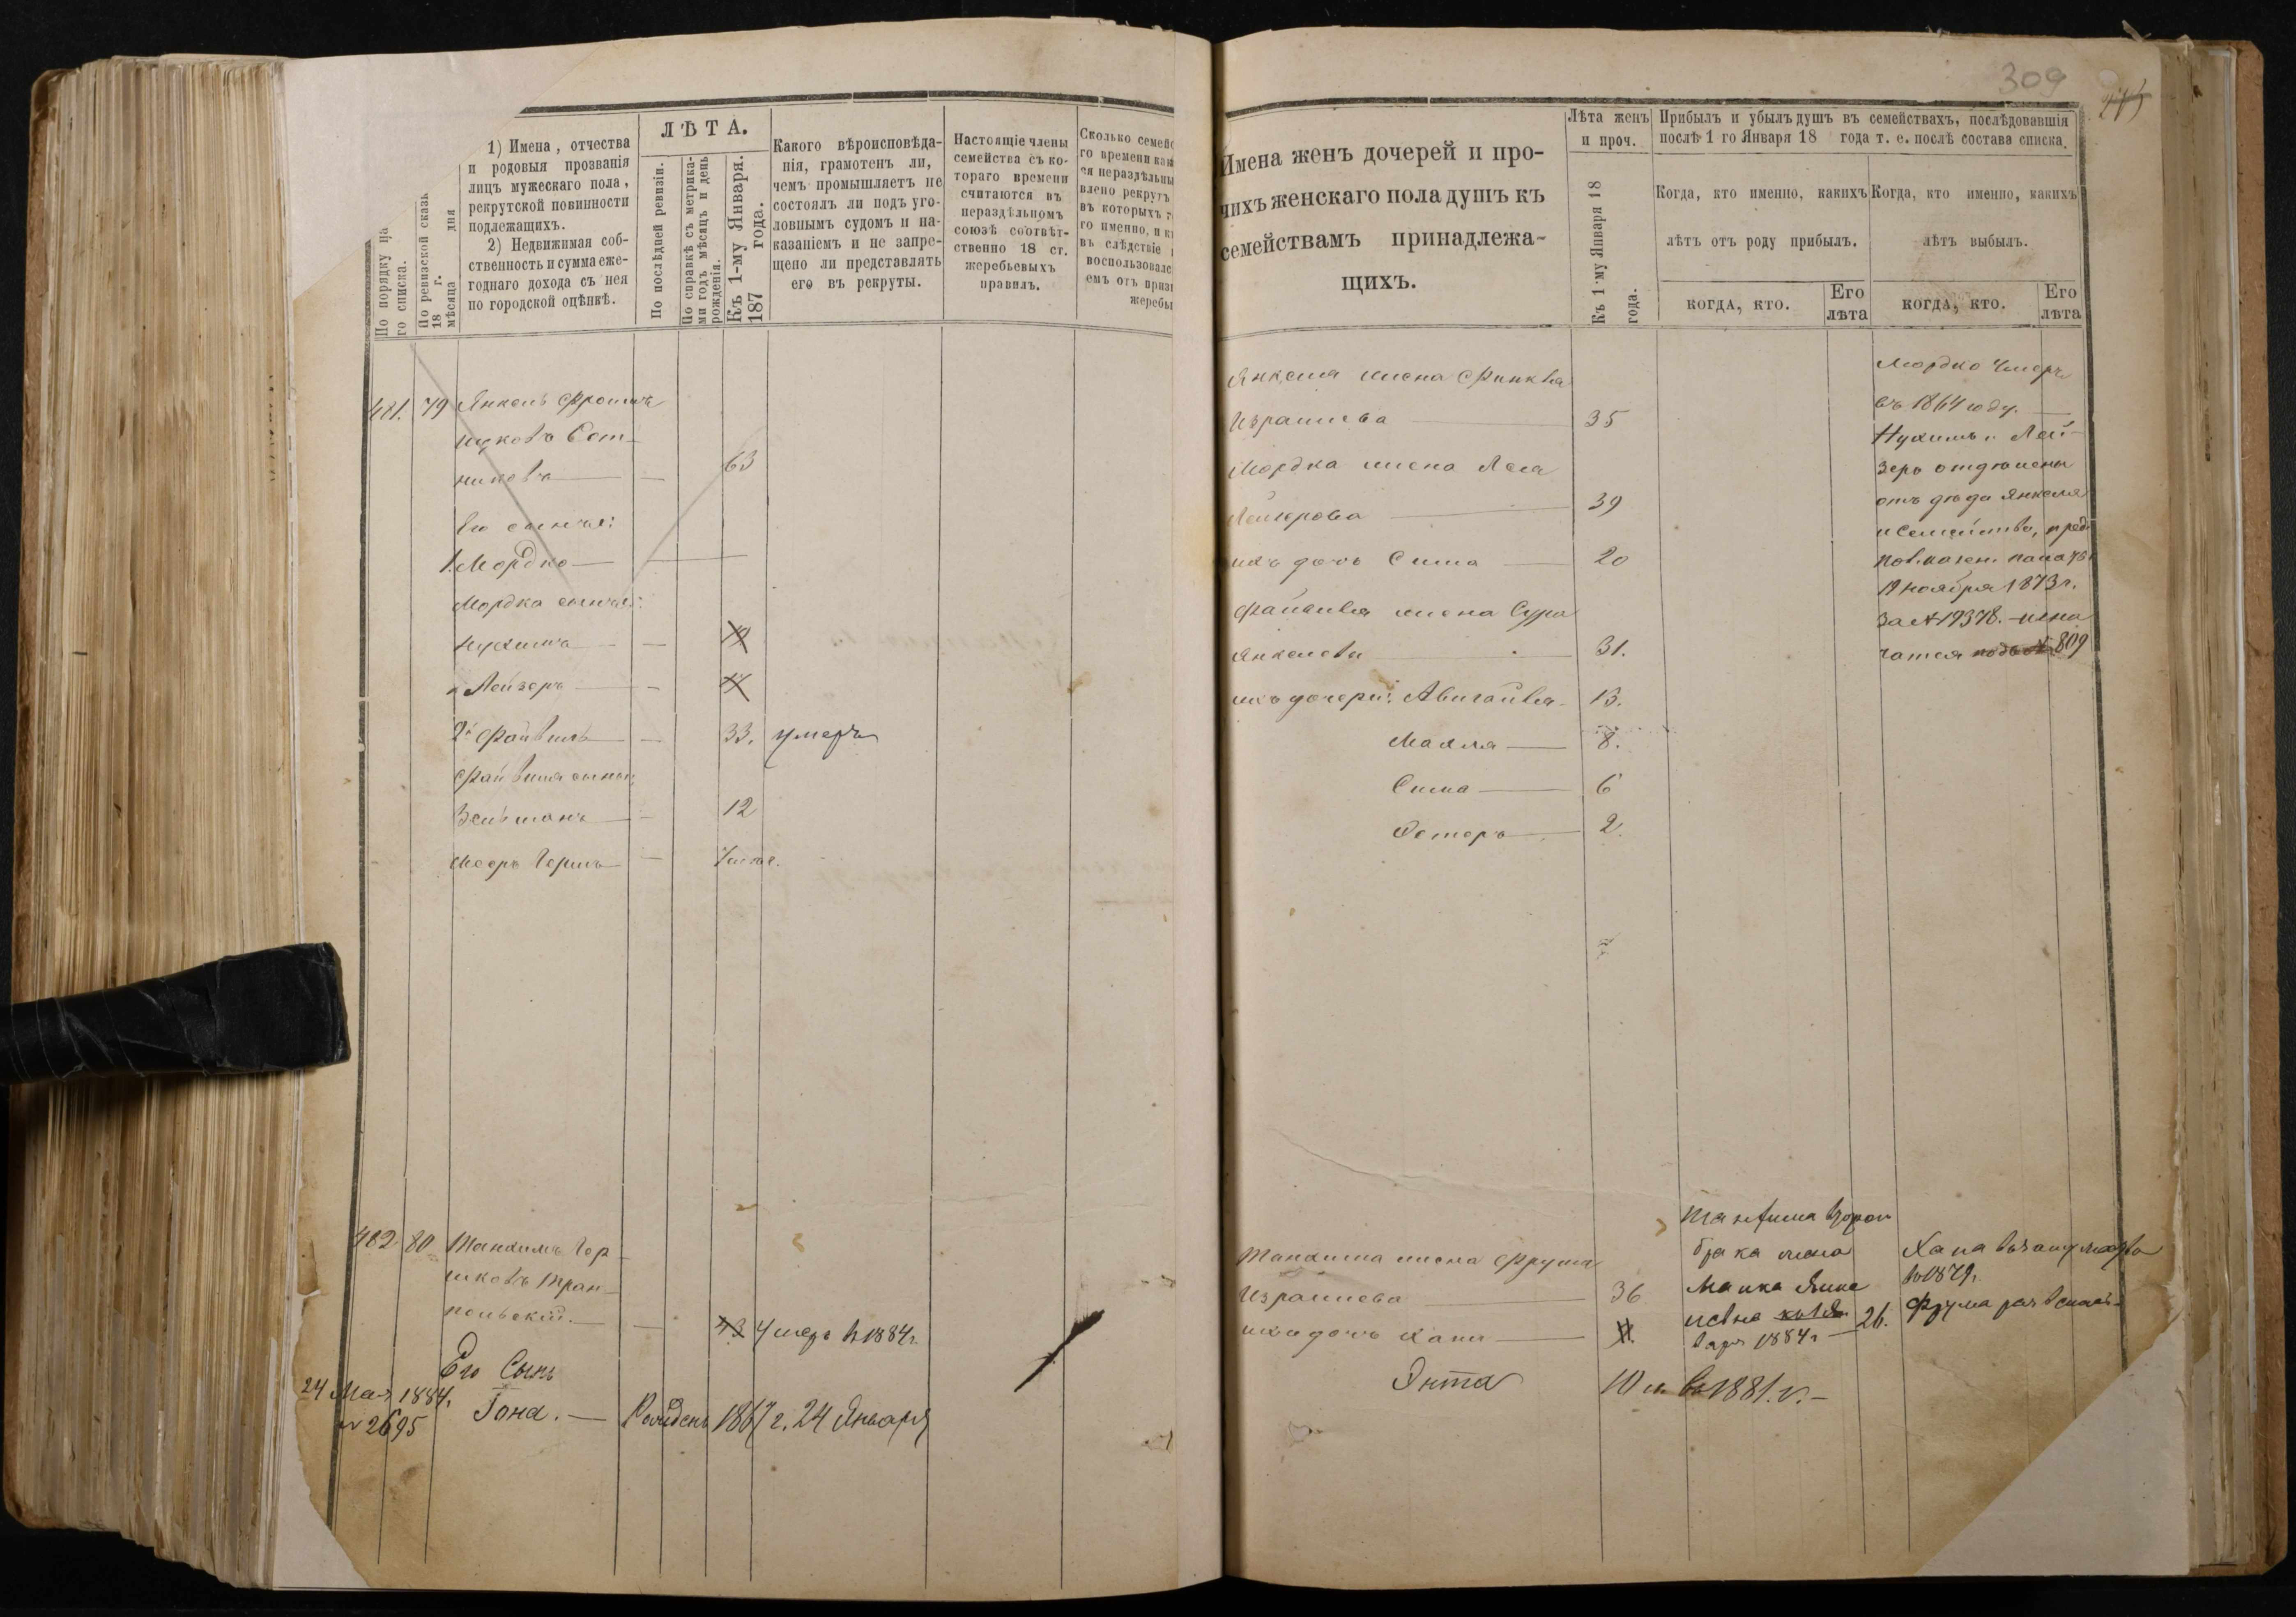 1) Имена, отчества
и родовыя прозванія
лицъ мужескаго пола,
рекрутской повинности
подлежащихъ.
2) Недвижимая соб-
ственность и сумма еже-
годнаго дохода съ нея
по городской оцѣнкѣ.
По порядку на
го списка.
По ревизской сказк
18 г.
мѣсяца дня
ЛѢТА.
По послѣдней ревизіи.
По справкѣ съ метрика-
ми годъ мѣсяцъ и день
рожденія.
Къ 1-му Января.
187 года.
Какого вѣроисповѣда-
нія, грамотенъ ли,
чемъ промышляетъ не
состоялъ ли подъ уго-
ловнымъ судомъ и на-
казаніемъ и не запре-
щено ли представлять
его въ рекруты.
Настоящіе члены
семейства съ ко-
тораго времени
считаются въ
нераздѣльномъ
союзѣ соотвѣт-
ственно 18 ст.
жеребьевыхъ
правилъ.
Сколько семейс
го времени как
ся нераздѣльны
влено рекрутъ
въ которыхъ г
го именно, и к
въ слѣдствіе
воспользовалс
емъ отъ приз
жеребь
481. 79 Янкель Фроим
никовъ 63
Его сынъя:
1. Мордко
Мордка сынъя:
Нухимъ 19
Лейзеръ 17
2й Файвишъ 33. умеръ
Файвиша сынъя:
Зельманъ 12
Мееръ Гершъ
482 80 Танхимъ Гер
шковъ Тран
польскій. 43 Умеръ въ 1884 г.
Его Сынъ
24 Мая 1884.
№ 2695 Іона. — Рожденъ 1867 г. 24 Января
309
Имена женъ дочерей и про-
чихъ женскаго пола душъ къ
семействамъ принадлежа-
щихъ.
Лѣта женъ
и проч.
Къ 1-му Января 18
года.
Прибылъ и убылъ душъ въ семействахъ, послѣдовавшія
послѣ 1 го Января 18 года т. е. послѣ состава списка.
Когда, кто именно, какихъ
лѣтъ отъ роду прибылъ.
Когда, кто именно, какихъ
лѣтъ выбылъ.
когда, кто.
Его
лѣта
когда, кто.
Его
лѣта
Янкеля жена
Израилева 35
Мордка жена Лея
Лейзерова 39
ихъ дочь Сима 20
Файвиша жена Сура
Янкелева 31.
ихъ дочери: 13.
Махля 8.
Сима 6
Эстеръ 2.
Мордко Умеръ
въ 1864 году.
Нухимъ и Лей-
зеръ отдѣлены
отъ дѣда Янкеля
и Семейство, пред.
казен. палаты
19 ноября 1873 г.
за № 19378.
чатся подъ № 809
Танхима жена Фрума
Израилева 36
ихъ дочь Хана 11.
Энта 10 л. въ 1881. г.
Танхима второй
брака жена
Малка Янке
левна 26.
Января 1884 г
Хана вышла замужъ
въ 1879.
Фрума